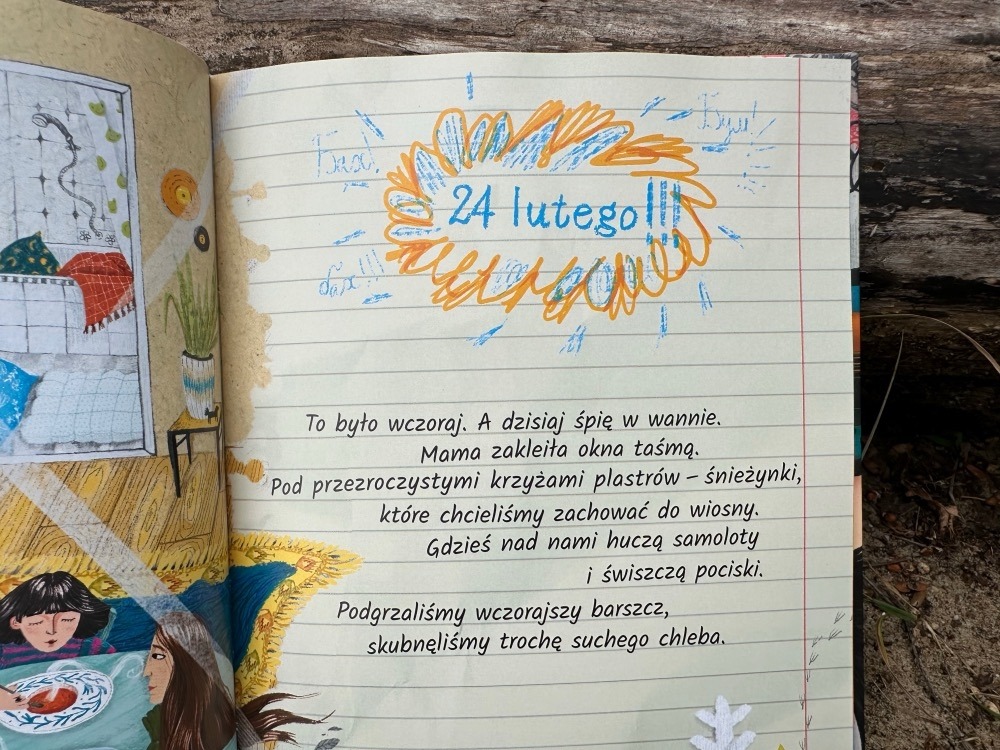 Бах! Бум!
24 lutego!!!
бах!!!
To było wczoraj. A dzisiaj śpię w wannie.
Mama zakleiła okna taśmą.
Pod przezroczystymi krzyżami plastrów – śnieżynki,
które chcieliśmy zachować do wiosny.
Gdzieś nad nami huczą samoloty
i świszczą pociski.
Podgrzaliśmy wczorajszy barszcz,
skubnęliśmy trochę suchego chleba.